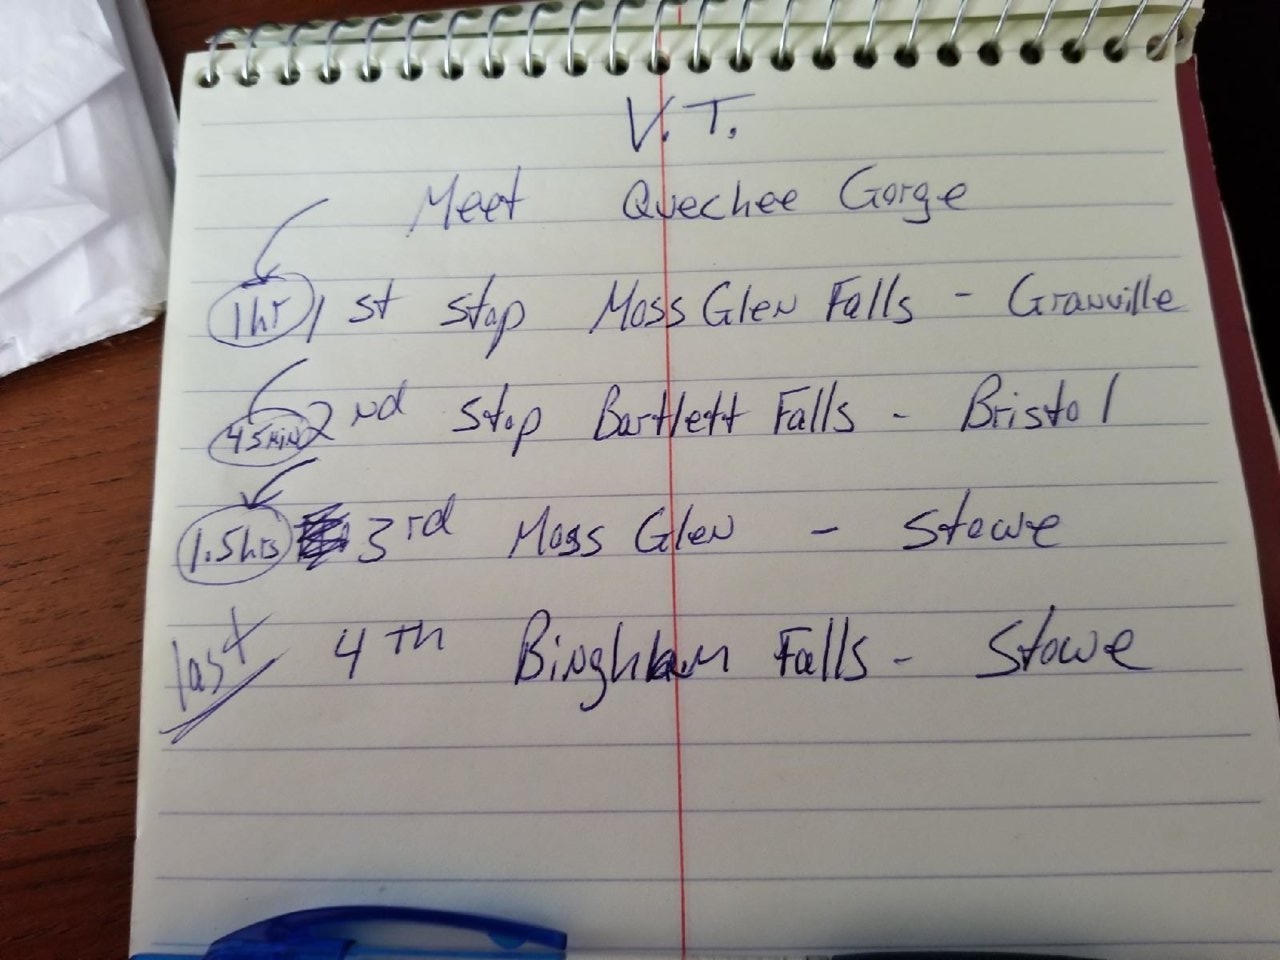 V.T.
Meet Quechee Gorge
1hr 1st stop Moss Glen Falls - Granville
45min 2nd stop Bartlett Falls - Bristol
1.5hrs 3rd Moss Glen - Stowe
last 4th Bingham Falls - Stowe